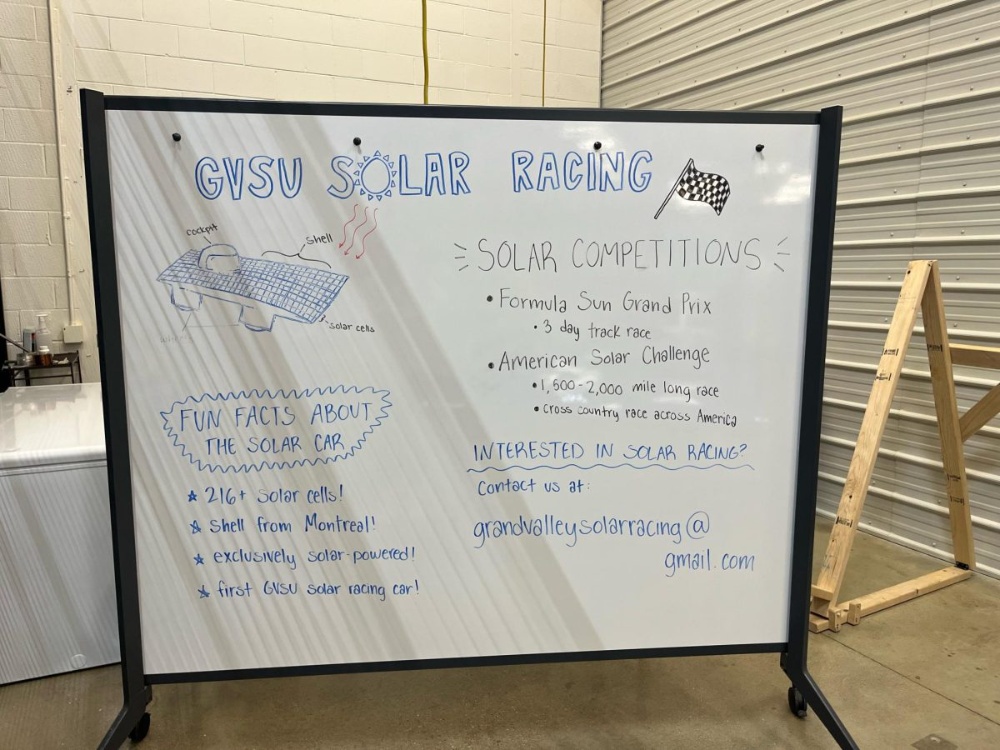 GVSU SOLAR RACING
cockpit
shell
solar cells
wheels
FUN FACTS ABOUT
THE SOLAR CAR
216+ solar cells!
shell from Montreal!
exclusively solar-powered!
first GVSU solar racing car!
SOLAR COMPETITIONS
Formula Sun Grand Prix
3 day track race
American Solar Challenge
1,500-2,000 mile long race
cross country race across America
INTERESTED IN SOLAR RACING?
Contact us at:
grandvalleysolarracing@
gmail.com